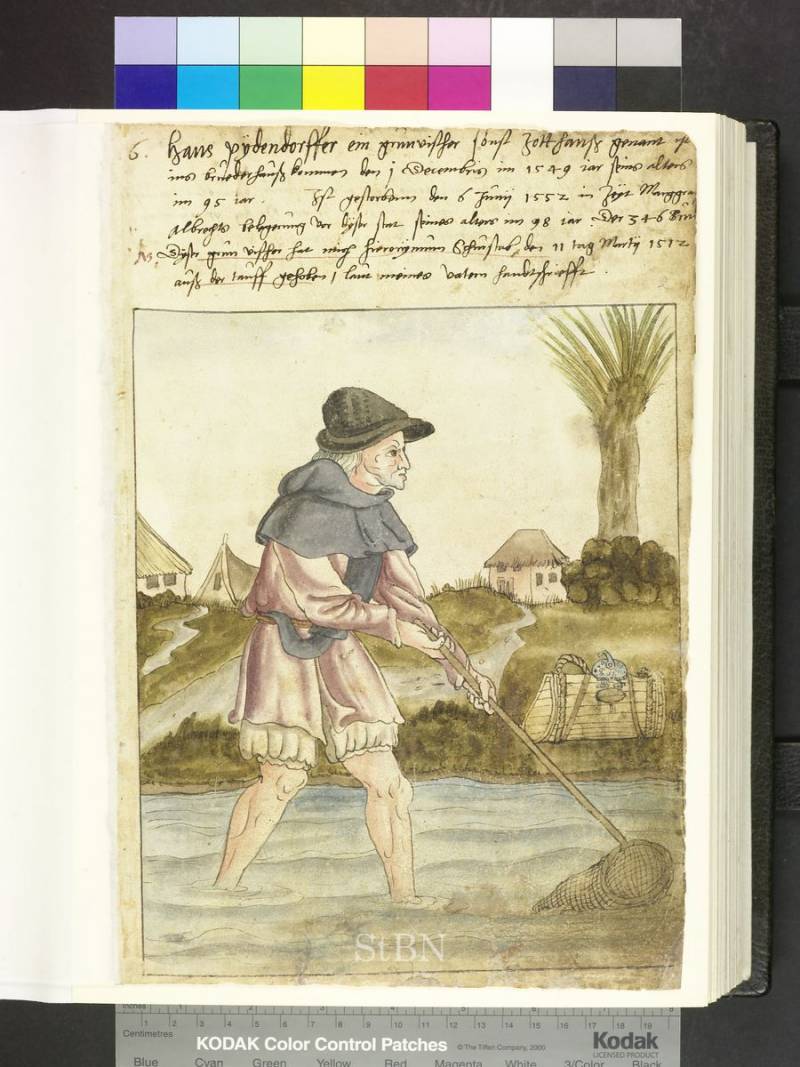 6. Hans pÿdendorffer ein grünvischer sonst Zott hanß genant ist
ins brüederhauß kommen den 1 Decembris im 1549 iar seins alters
im 95 iar. Ist gestorben den 6 Junij 1552 in Zeÿt Marggra
Albrechts belegerung der stat seines alters im 98 iar. Der 346 Brü
grün vischer hat mich Hieronÿmum den 11 tag Martij 1512
auß der tauff gehoben / laut meines vatern handtschriefft.
StBN
Inches 1 2 3 4 5 6 7 8
Centimetres 1 2 3 4 5 6 7 8 9 10 11 12 13 14 15 16 17 18 19
KODAK Color Control Patches © The Tiffen Company, 2000 Kodak
LICENSED PRODUCT
Blue Cyan Green Yellow Red Magenta White 3/Color Black